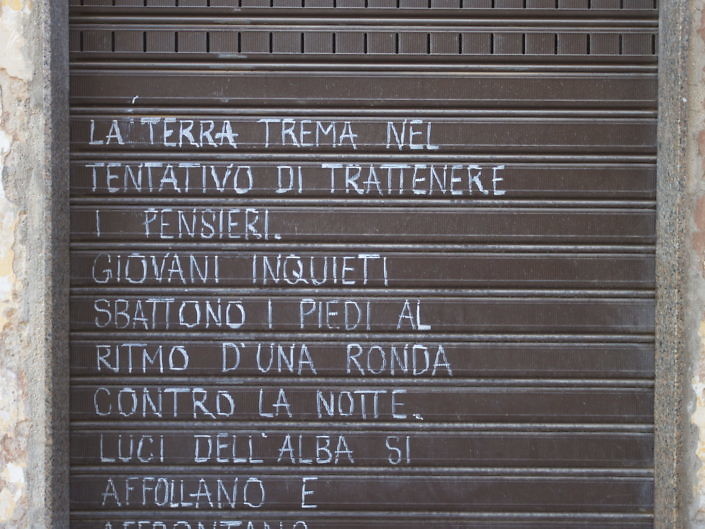 LA TERRA TREMA NEL
TENTATIVO DI TRATTENERE
I PENSIERI.
GIOVANI INQUIETI
SBATTONO I PIEDI AL
RITMO D'UNA RONDA
CONTRO LA NOTTE.
LUCI DELL'ALBA SI
AFFOLLANO E
AFFRONTANO